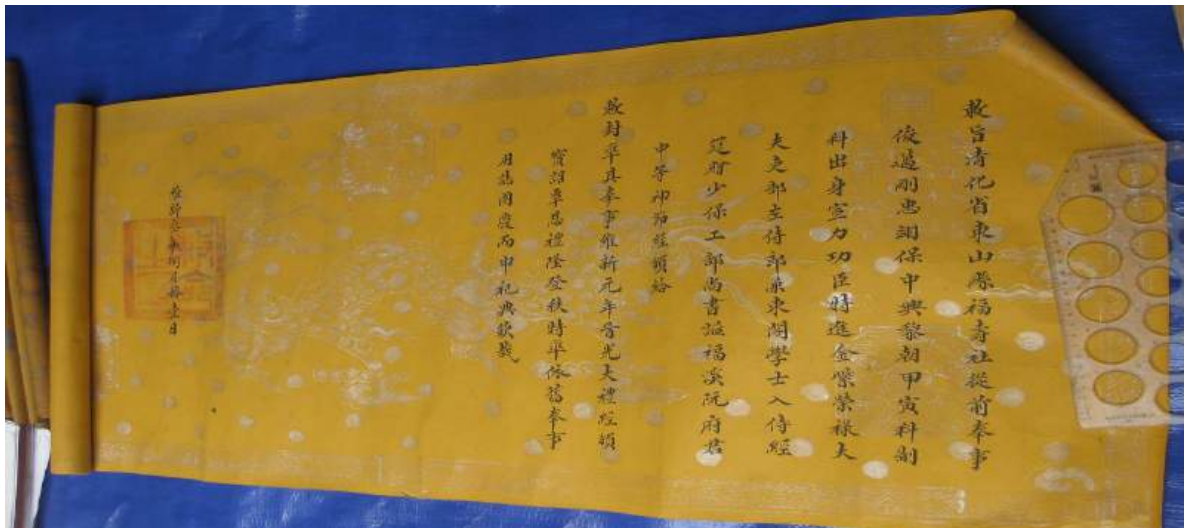 敕旨清化省東山縣福壽社從前奉事
俊邁剛忠翊保中興黎朝甲寅科制
科出身宣力功臣特進金紫榮祿大
夫吏部左侍郎兼東閣學士入侍經
筵贈少保工部尚書諡福溪阮府君
中等神節經頒給
敕封準其奉事維新元年晉光大禮經頒
寶詔覃恩禮隆登秩特準依舊奉事
用誌國慶而申祀典欽哉
維新 年 月 日